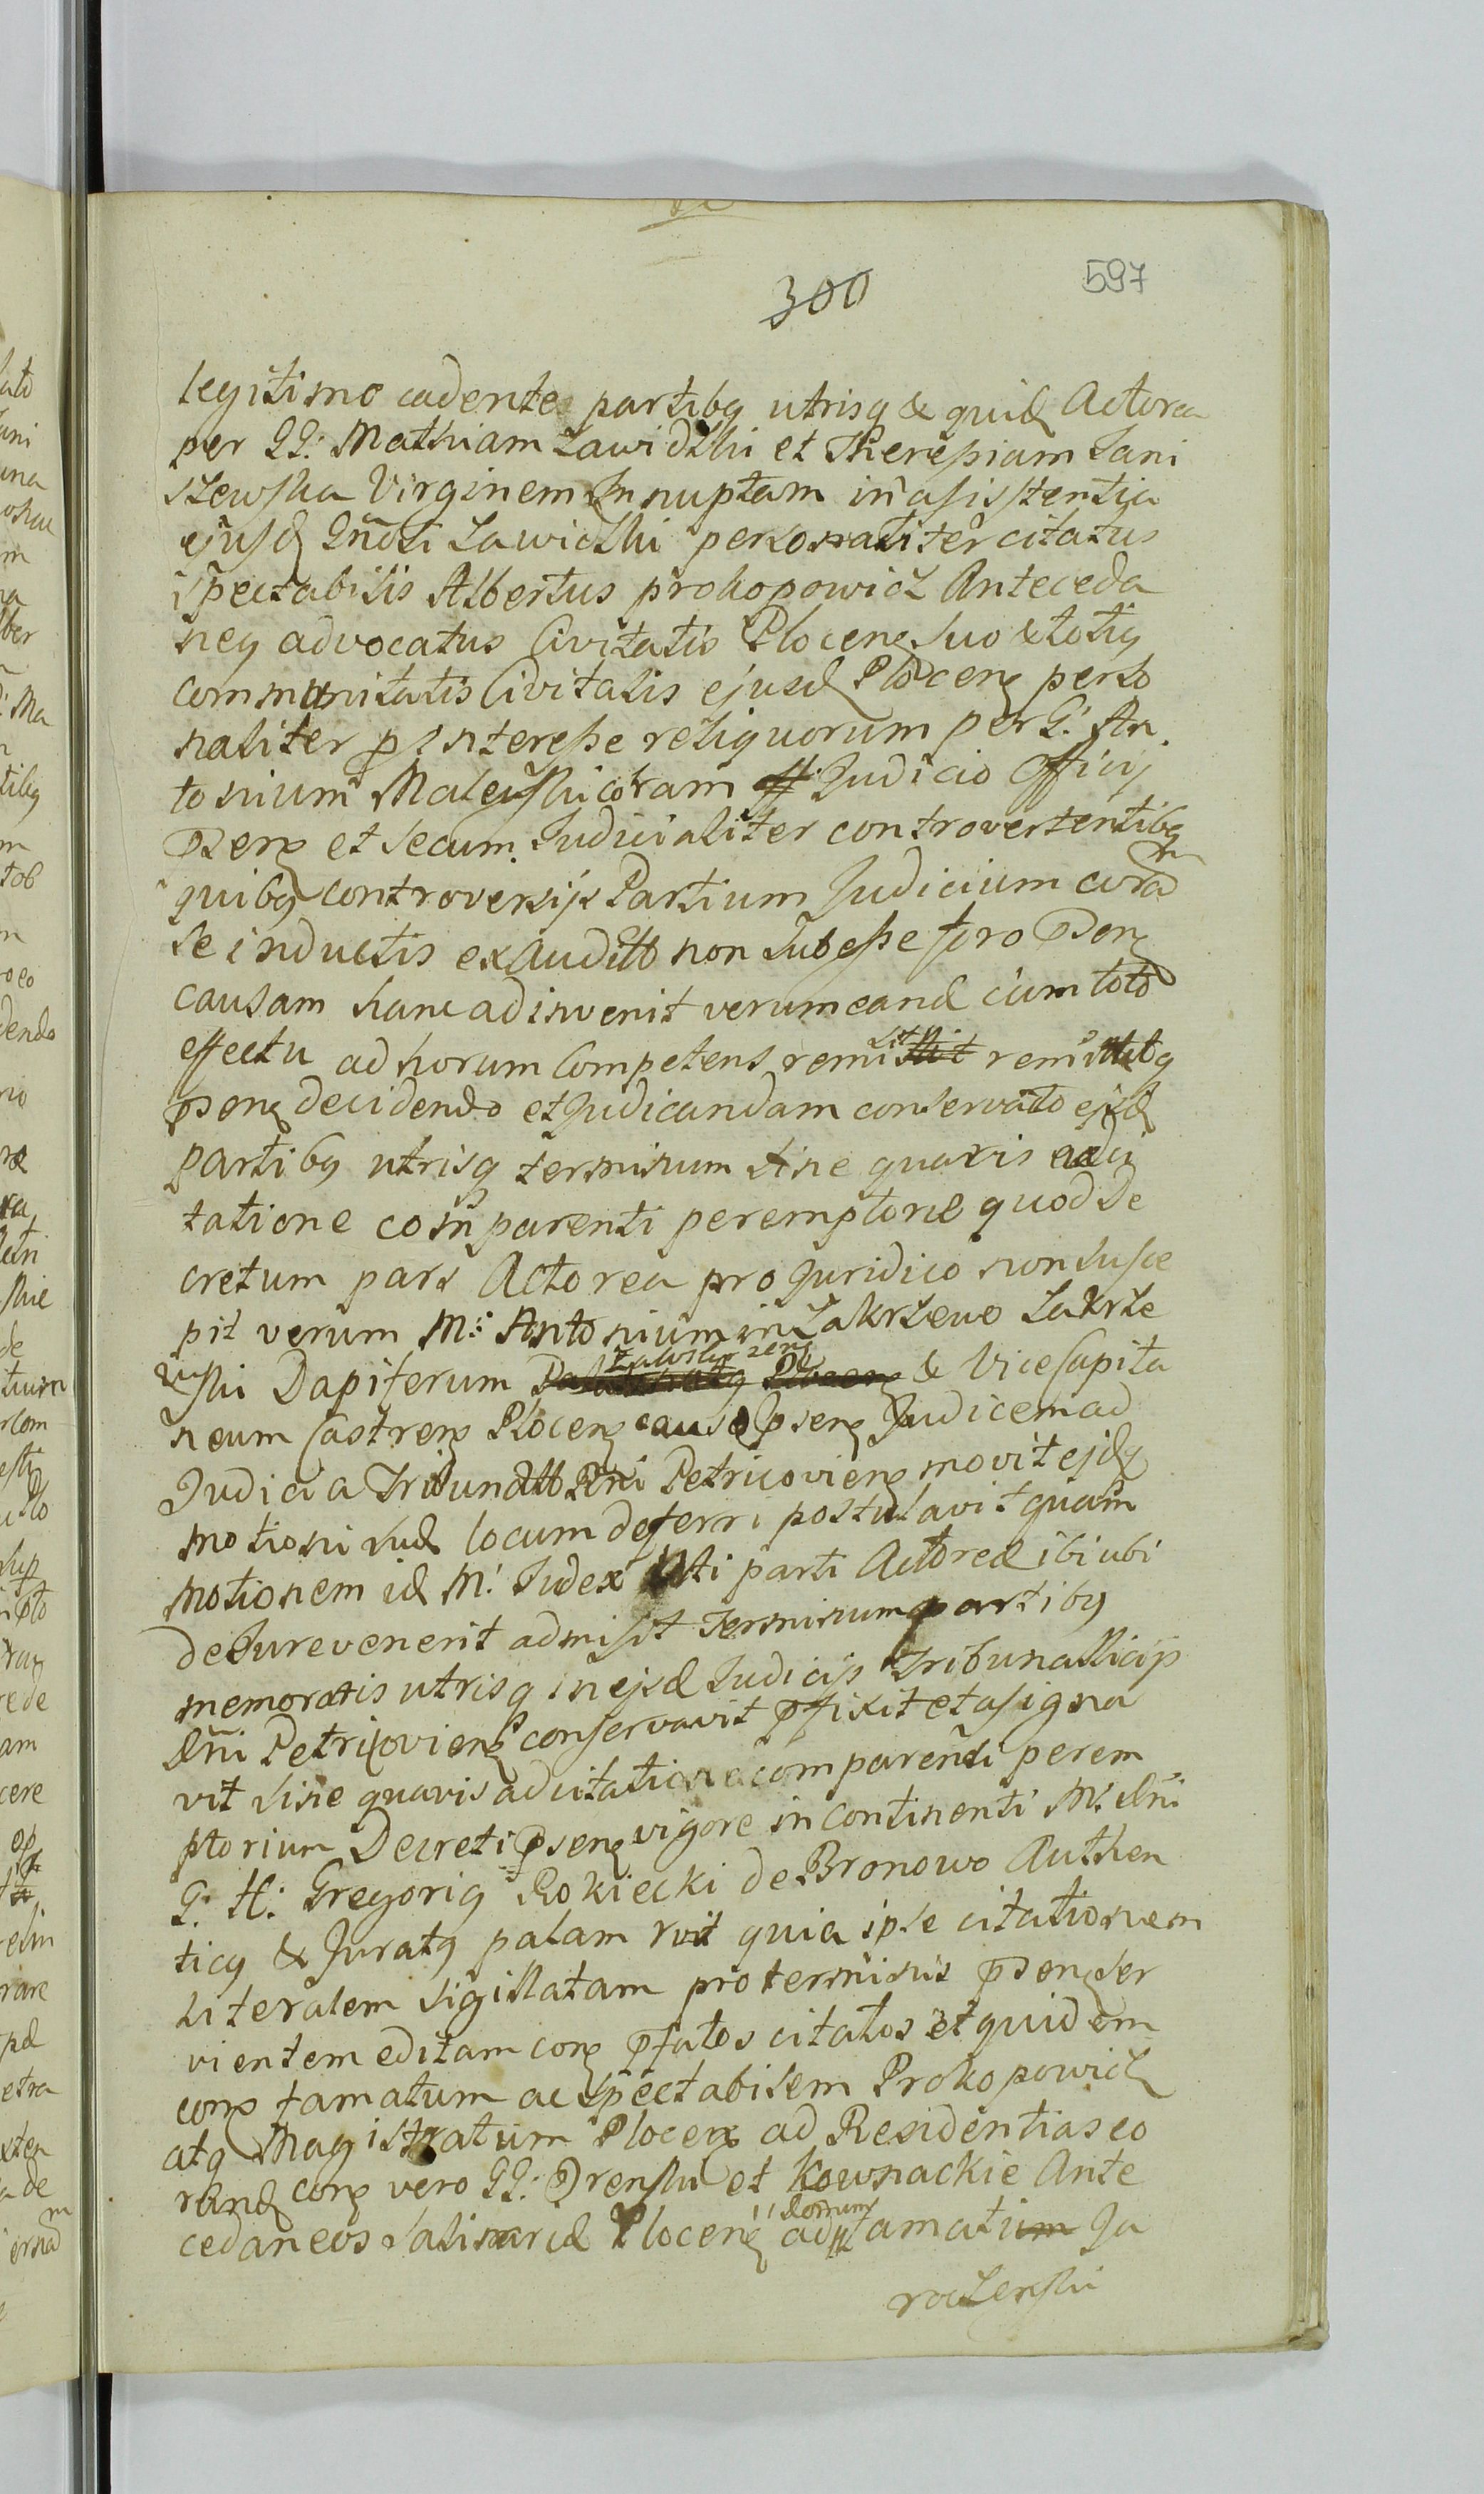 300
597
legitimo cadente partibq utrisq & quid Actorea
per GG: Mathiam Zawidzki et Theresiam Jani
szewska Virginem Innuptam in asistentia
ejusd Gnosi Zawidzki personaliter citatus
Spectabilis Albertus Prokopowicz Anteceda
neq advocatus Civitatis Plocens suo & totiq
communitatis Civitatis ejusd Plocens perso
naliter p interesse reliquorum per G: An
tonium Maleski coram Judicio Officij
psens et secum Judicialiter controvertentibq
quibq controversijs Partium Judicium cora
se inductis exauditt non subesse foro psens
causam hanc adinvenit verum eand cum toto
effectu ad horum Competens remisit remittibq
psens decidendo et Judicandam conservato ejsd
partibq utrisq terminum sine quavis adci
tatione comparenti peremptorie quod De
cretum pars Actorea pro Juridico non susce
pit verum M: Antonium in Zakrzewo Zakrze
wski Dapiferum Palatinatq Plocens Zawskrzens & ViceCapita
neum Castrens Plocens causæ psens Judicem ad
Judicia Tribunatt Rni Petricoviens movit ejdq
motioni suæ locum deferri postulavit quam
motionem id M: Judex isti parti Actoreæ ibi ubi
de Jure venerit admisit Terminum partibq
memoratis utrisq in ejsd Judicijs Tribunallicijs
Rni Petricoviens conservavit pfixit et asigna
vit sine quavis adcitatione comparendi perem
ptorium Decreti psens vigore incontinenti M: Rni
G: H: Gregoriq Rokiecki de Bronowo Authen
ticq & Juratq palam rvit quia ipse citationem
literalem sigillatam pro terminis psens ser
vientem editam cons pfatos citatos et quidem
cons famatum ac Spectabilem Prokopowicz
atq Magistratum Plocens ad Residentias eo
rund cons vero GG: Drenski et Kownackie Ante
cedaneos Salinariæ Plocens ad domum famatum Ja
roczenski